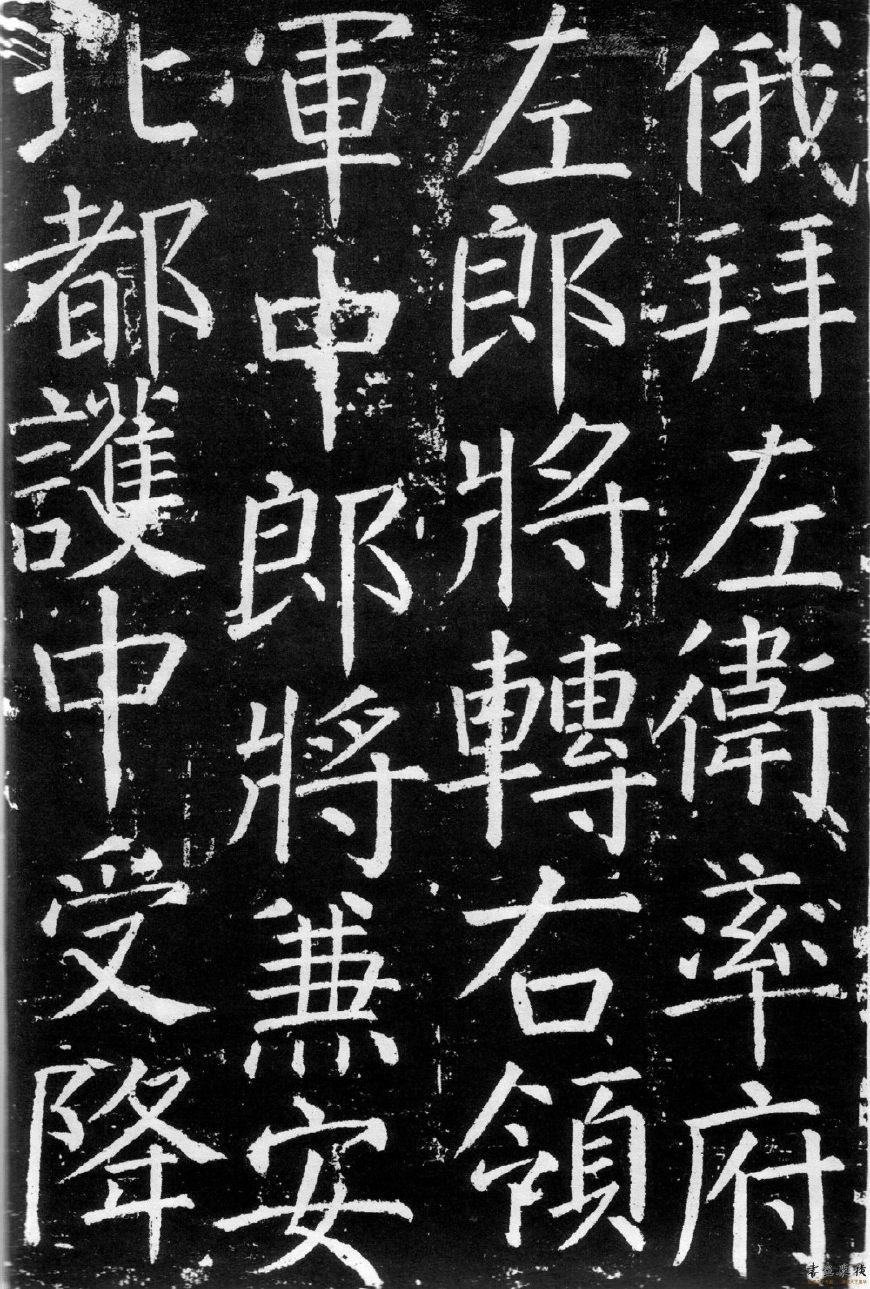 俄拜左衛率府
左郎將轉右領
軍中郎將兼安
北都護中受降